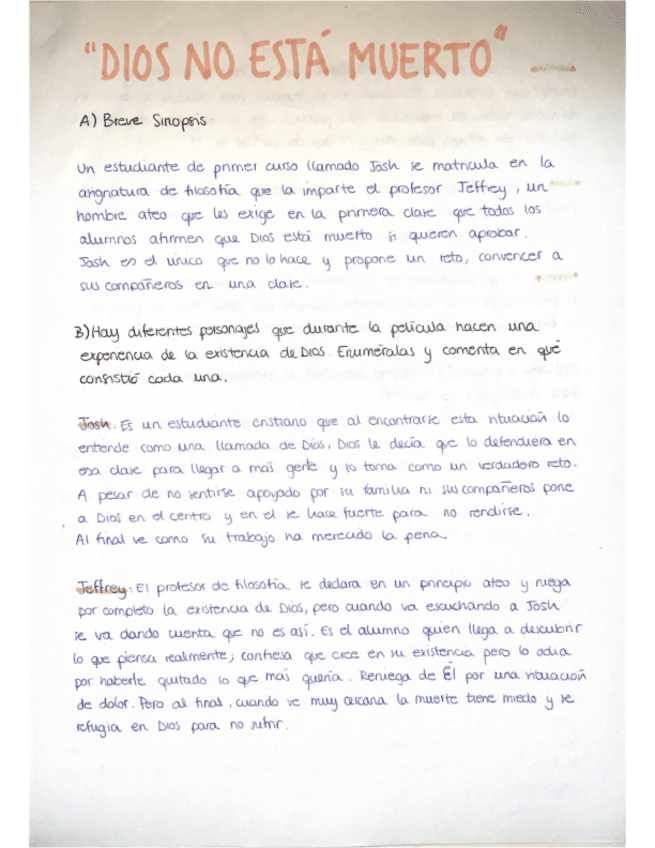 "DIOS NO ESTÁ MUERTO"
A) Breve Sinopsis
Un estudiante de primer curso llamado Josh se matricula en la
asignatura de filosofía que la imparte el profesor Jeffrey, un
hombre ateo que les exige en la primera clase que todos los
alumnos afirmen que Dios está muerto si quieren aprobar.
Josh es el único que no lo hace y propone un reto, convencer a
sus compañeros en una clase.
B) Hay diferentes personajes que durante la película hacen una
experiencia de la existencia de Dios. Enuméralas y comenta en qué
consistió cada una.
Josh: Es un estudiante cristiano que al encontrarse esta situación lo
entiende como una llamada de Dios, Dios le decía que lo defendiera en
esa clase para llegar a más gente y lo toma como un verdadero reto.
A pesar de no sentirse apoyado por su familia ni sus compañeros pone
a Dios en el centro y en el se hace fuerte para no rendirse.
Al final ve como su trabajo ha merecido la pena.
Jeffrey: El profesor de filosofía se declara en un principio ateo y niega
por completo la existencia de Dios, pero cuando va escuchando a Josh
se va dando cuenta que no es así. Es el alumno quien llega a descubrir
lo que piensa realmente; confiesa que cree en su existencia pero lo odia
por haberle quitado lo que más quería. Reniega de Él por una situación
de dolor. Pero al final, cuando ve muy cercana la muerte tiene miedo y se
refugia en Dios para no sufrir.